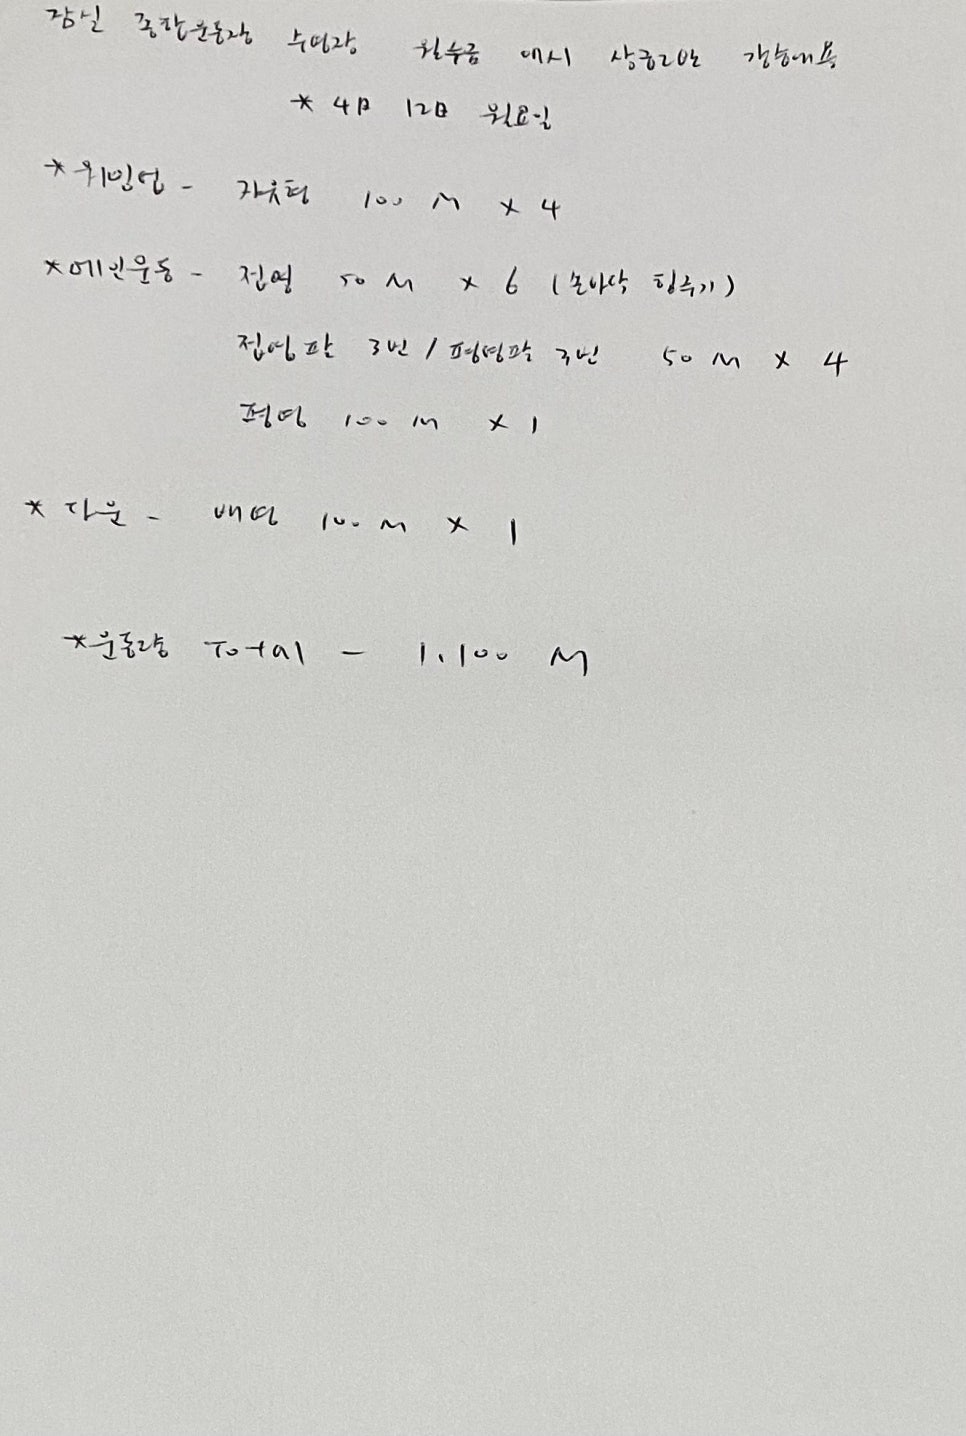 잠실 종합운동장 수영장 월수금 여시 상급2반 강습내용
* 4月 12日 월요일
* 워밍업 - 자유형 100 M x 4
* 메인운동 - 접영 50 M x 6 (손바닥 힘주기)
접영팔 3번 / 평영팔 3번 50 M x 4
평영 100 M x 1
* 다운 - 배영 100 M x 1
* 운동량 Total - 1.100 M